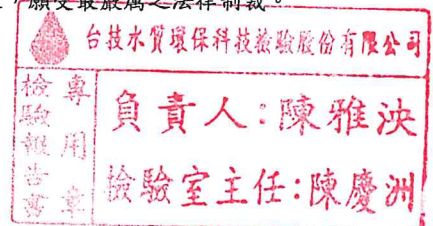 ，願受最嚴厲之法律制裁。
台技水質環保科技檢驗股份有限公司
檢驗報告書
專用章
負責人：陳雅泱
檢驗室主任：陳慶洲